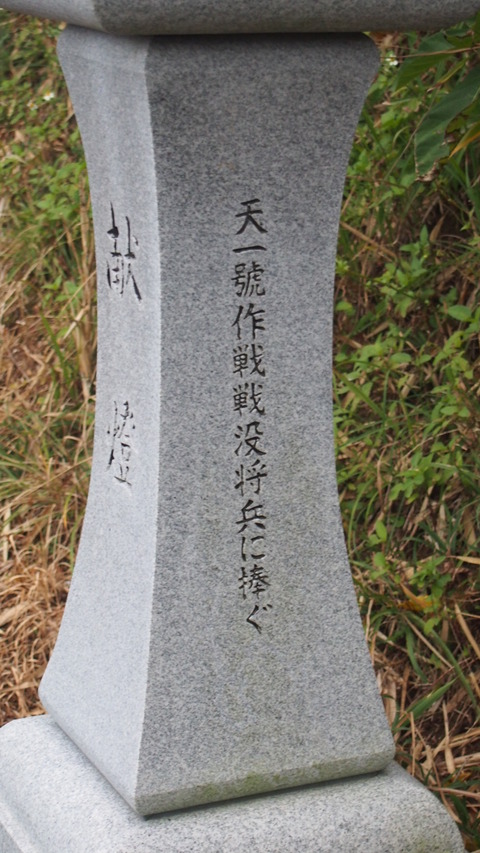 献燈
天一號作戦戦没将兵に捧ぐ